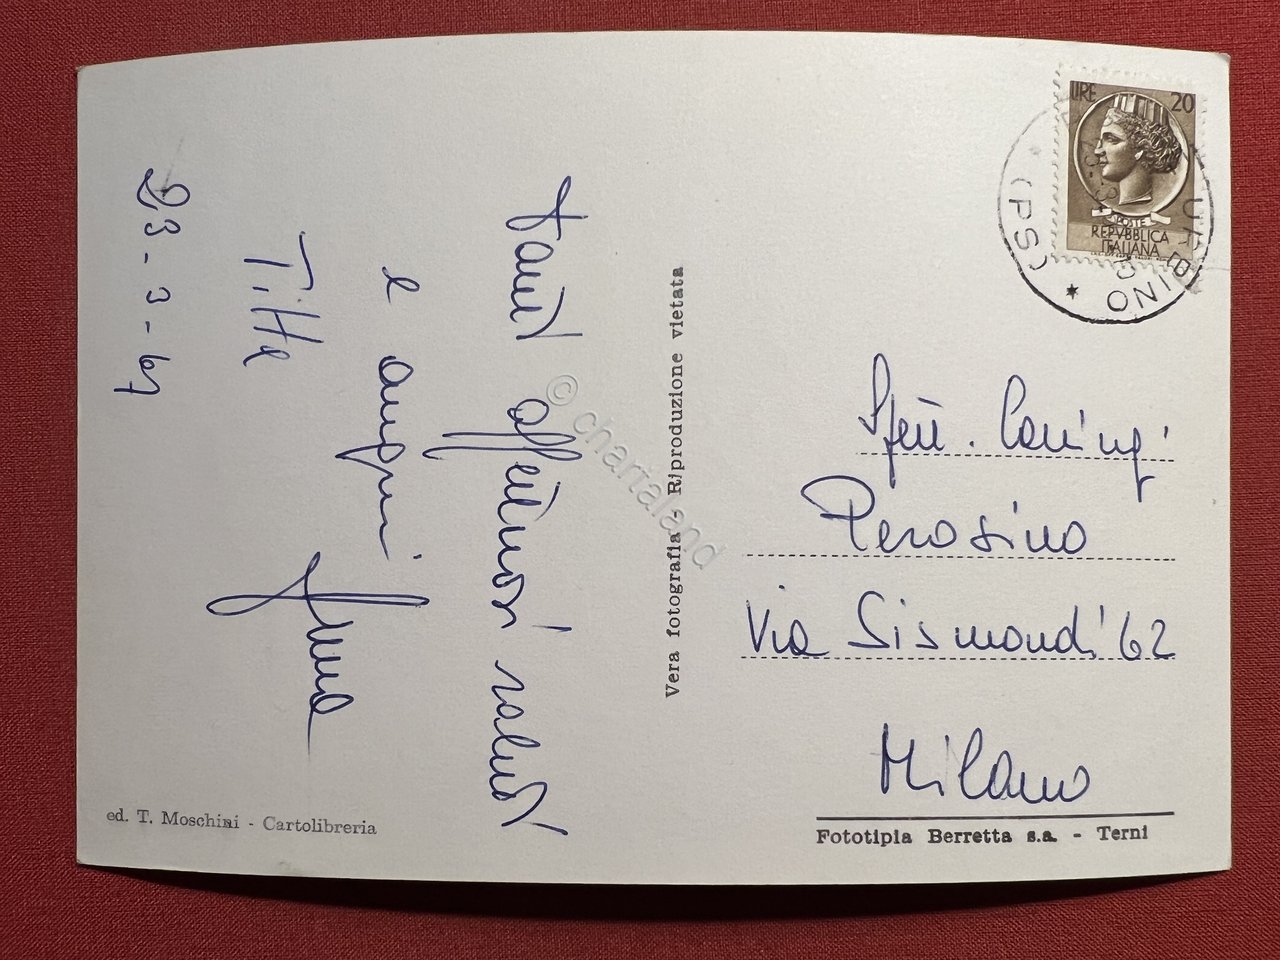 23-3-69
Tanti affettuosi saluti
e auguri
Titta
Vera fotografia - Riproduzione vietata
© chartaland
LIRE 20
POSTE
REPVBBLICA
ITALIANA
(PS)
Perosino
Via Sismondi 62
Milano
ed. T. Moschini - Cartolibreria
Fototipia Berretta s.a. - Terni